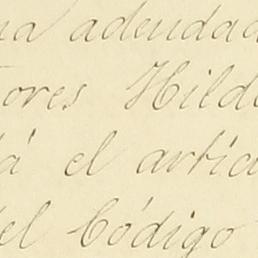 na adeudad
ores Hild
tá el artíc
del Código